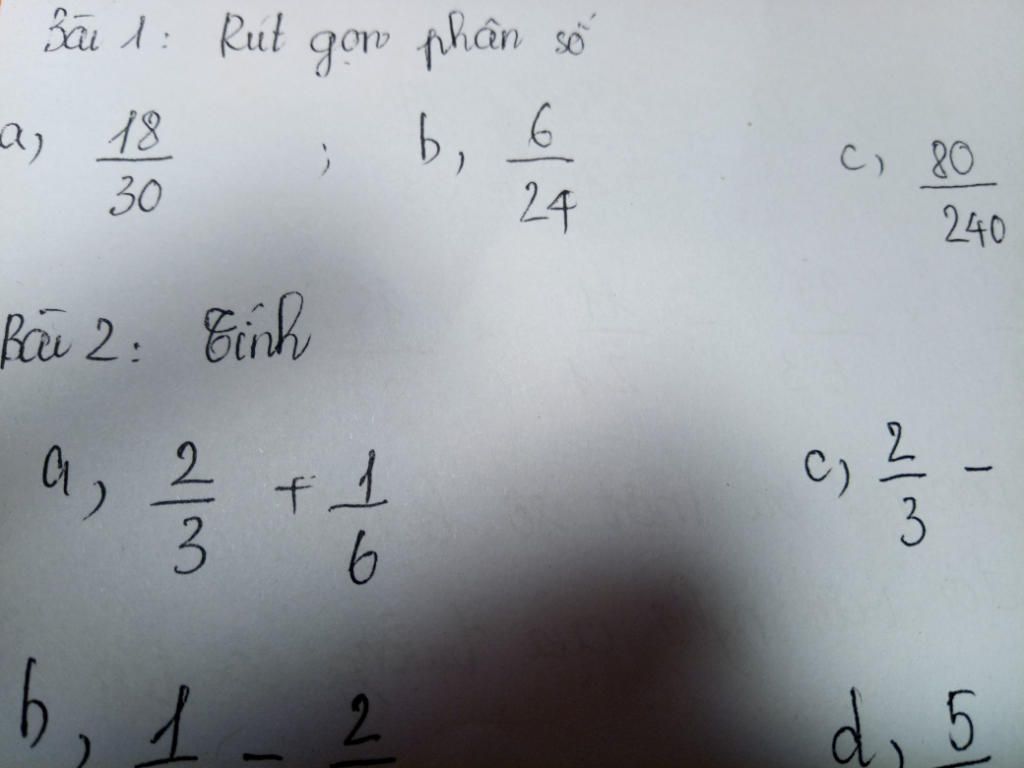 Bài 1: Rút gọn phân số
a, 18/30 ; b, 6/24 c, 80/240
Bài 2: Tính
a, 2/3 + 1/6 c, 2/3 -
b, 1 - 2 d, 5